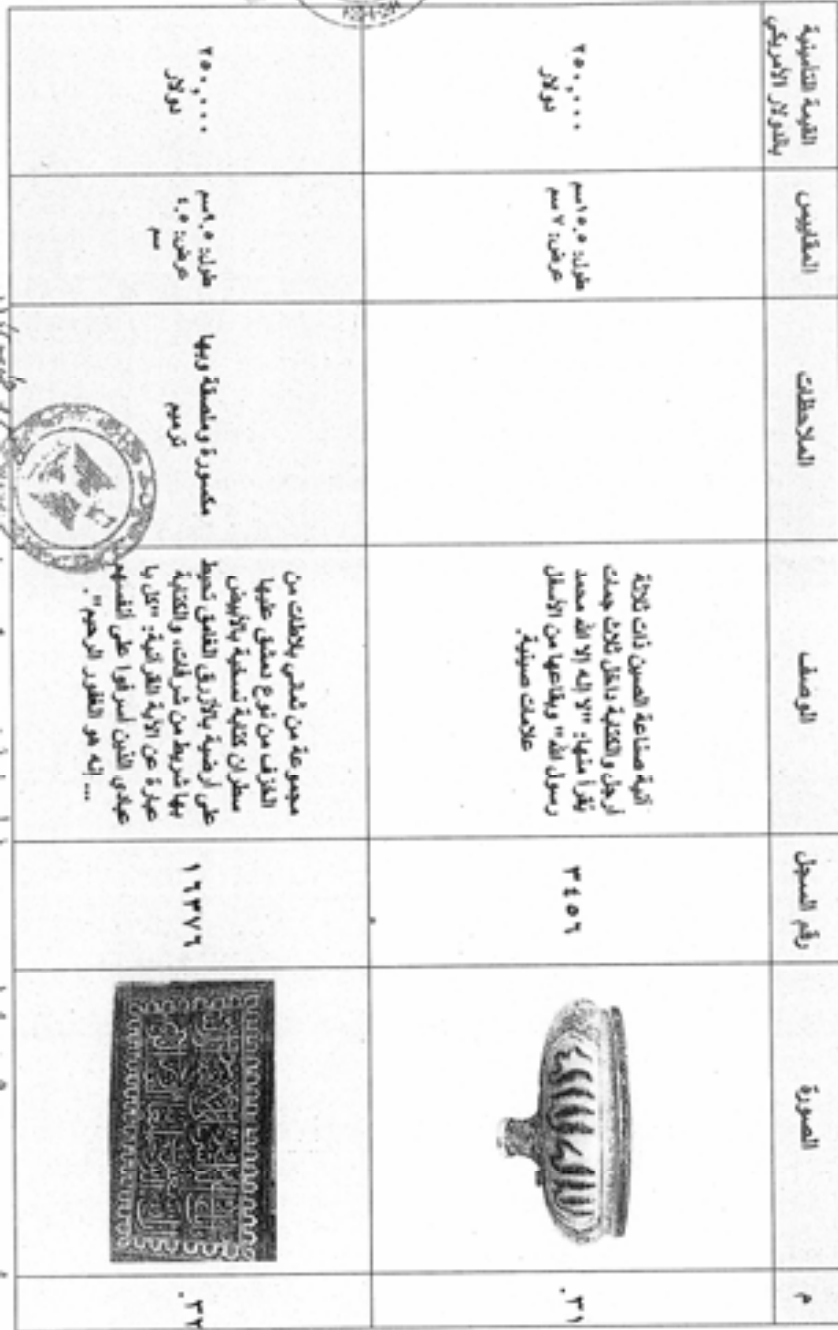 م
الصورة
رقم السجل
الوصف
الملاحظات
المقاييس
القيمة التأمينية
بالدولار الأمريكي
٣١.
٣٤٥٦
آنية صناعة الصين ذات ثلاثة
أرجل والكتابة داخل ثلاث جمات
يُقرأ منها: "لا إله إلا الله محمد
رسول الله" وبقاعها من الأسفل
علامات صينية.
طول: ١٥,٥سم
عرض: ٧ سم
٢٥٠,٠٠٠
دولار
٣٢.
١٦٣٧٦
مجموعة من ثماني بلاطات من
الخزف من نوع دمشق عليها
سطران كتابة نسخية بالأبيض
على أرضية بالأزرق الغامق تحيط
بها شريط من شرفات، والكتابة
عبارة عن الآية القرآنية: "قل يا
عبادي الذين أسرفوا على أنفسهم
... إنه هو الغفور الرحيم".
مكسورة وملصقة وبها
ترميم
طول: ٩,٥سم
عرض: ٤,٥
سم
٢٥٠,٠٠٠
دولار